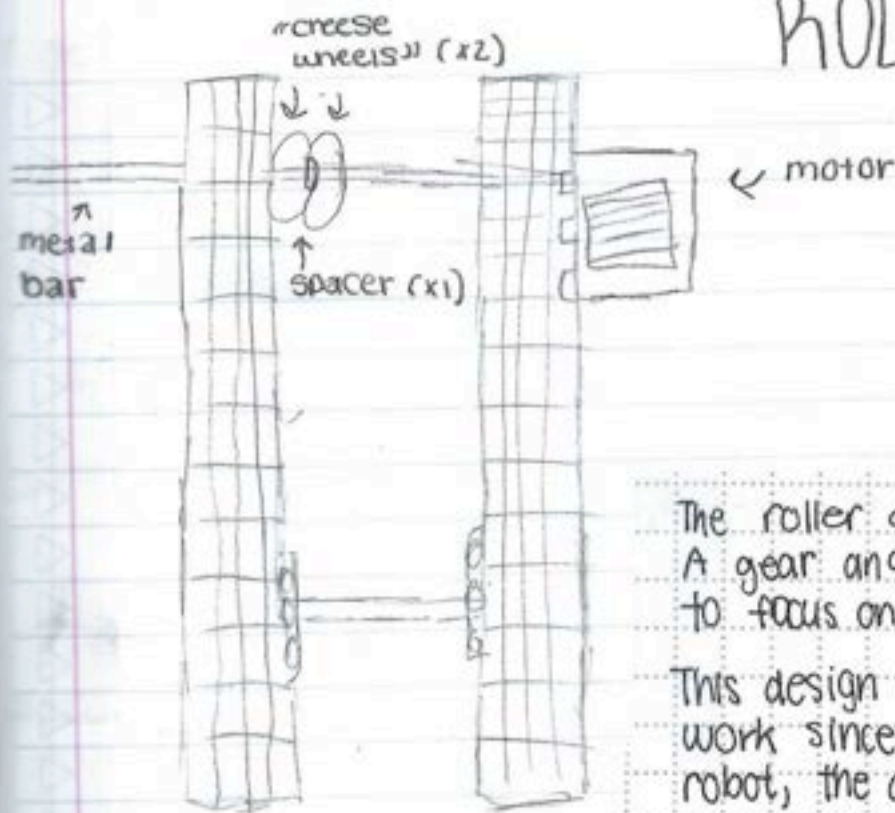 "cheese
wheels" (x2)
ROL
motor
metal
bar
spacer (x1)
The roller
A gear and
to focus on
This design
work since
robot, the